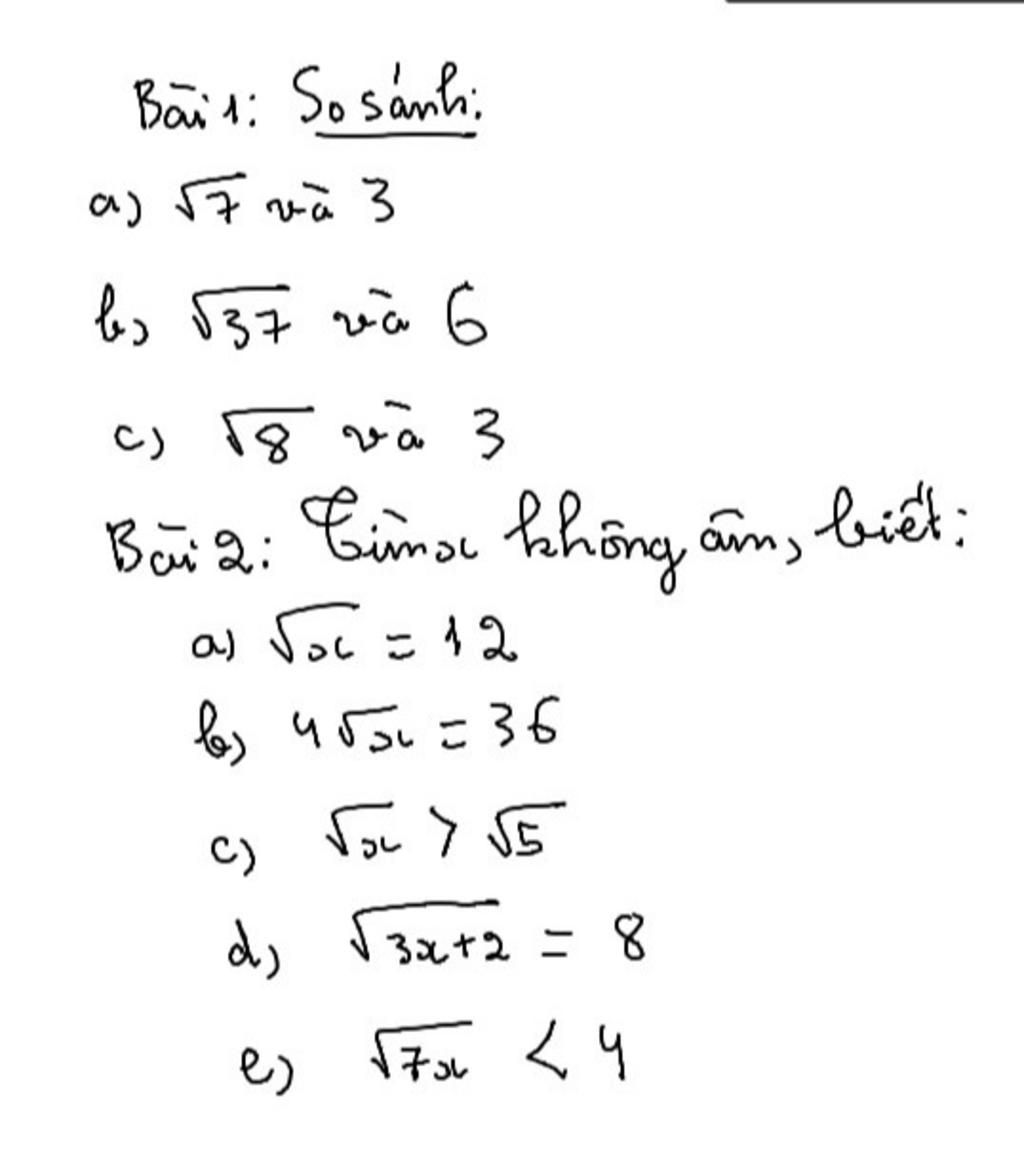 Bài 1: So sánh:
a) √7 và 3
b) √37 và 6
c) √8 và 3
Bài 2: Tìm x không âm, biết:
a) √x = 12
b) 4√x = 36
c) √x > √5
d) √3x+2 = 8
e) √7x < 4